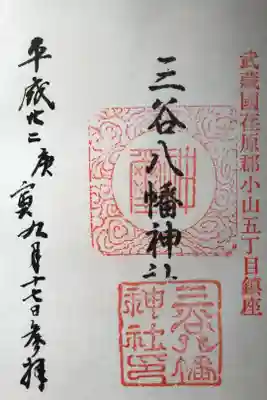 武藏國荏原郡小山五丁目鎮座
三谷八幡神社
三谷八幡
神社印
平成廿二庚
寅九月十七日参拜